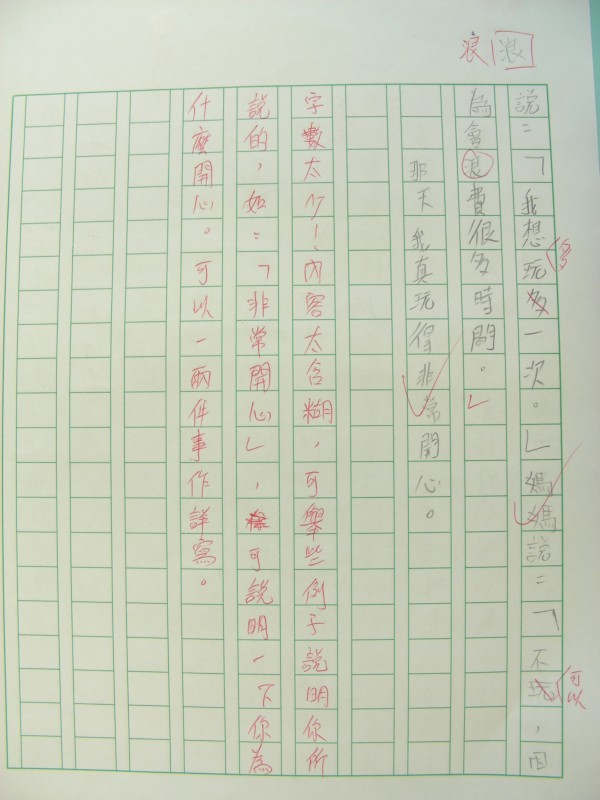 浪 浪
說：「我想玩多一次。」媽媽說：「不玩，因
多
可以
為會浪費很多時間。」
那天 我真玩得非常開心。
字數太少！內容太含糊，可舉些例子說明你所
說的，如：「非常開心」，可說明一下你為
什麼開心。可以一兩件事作詳寫。